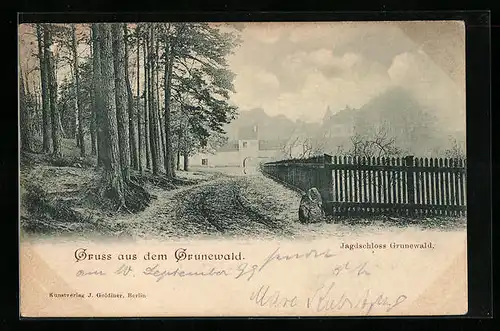 Jagdschloss Grunewald.
Gruss aus dem Grunewald.
am 10. September 99
Kunstverlag J. Goldiner, Berlin